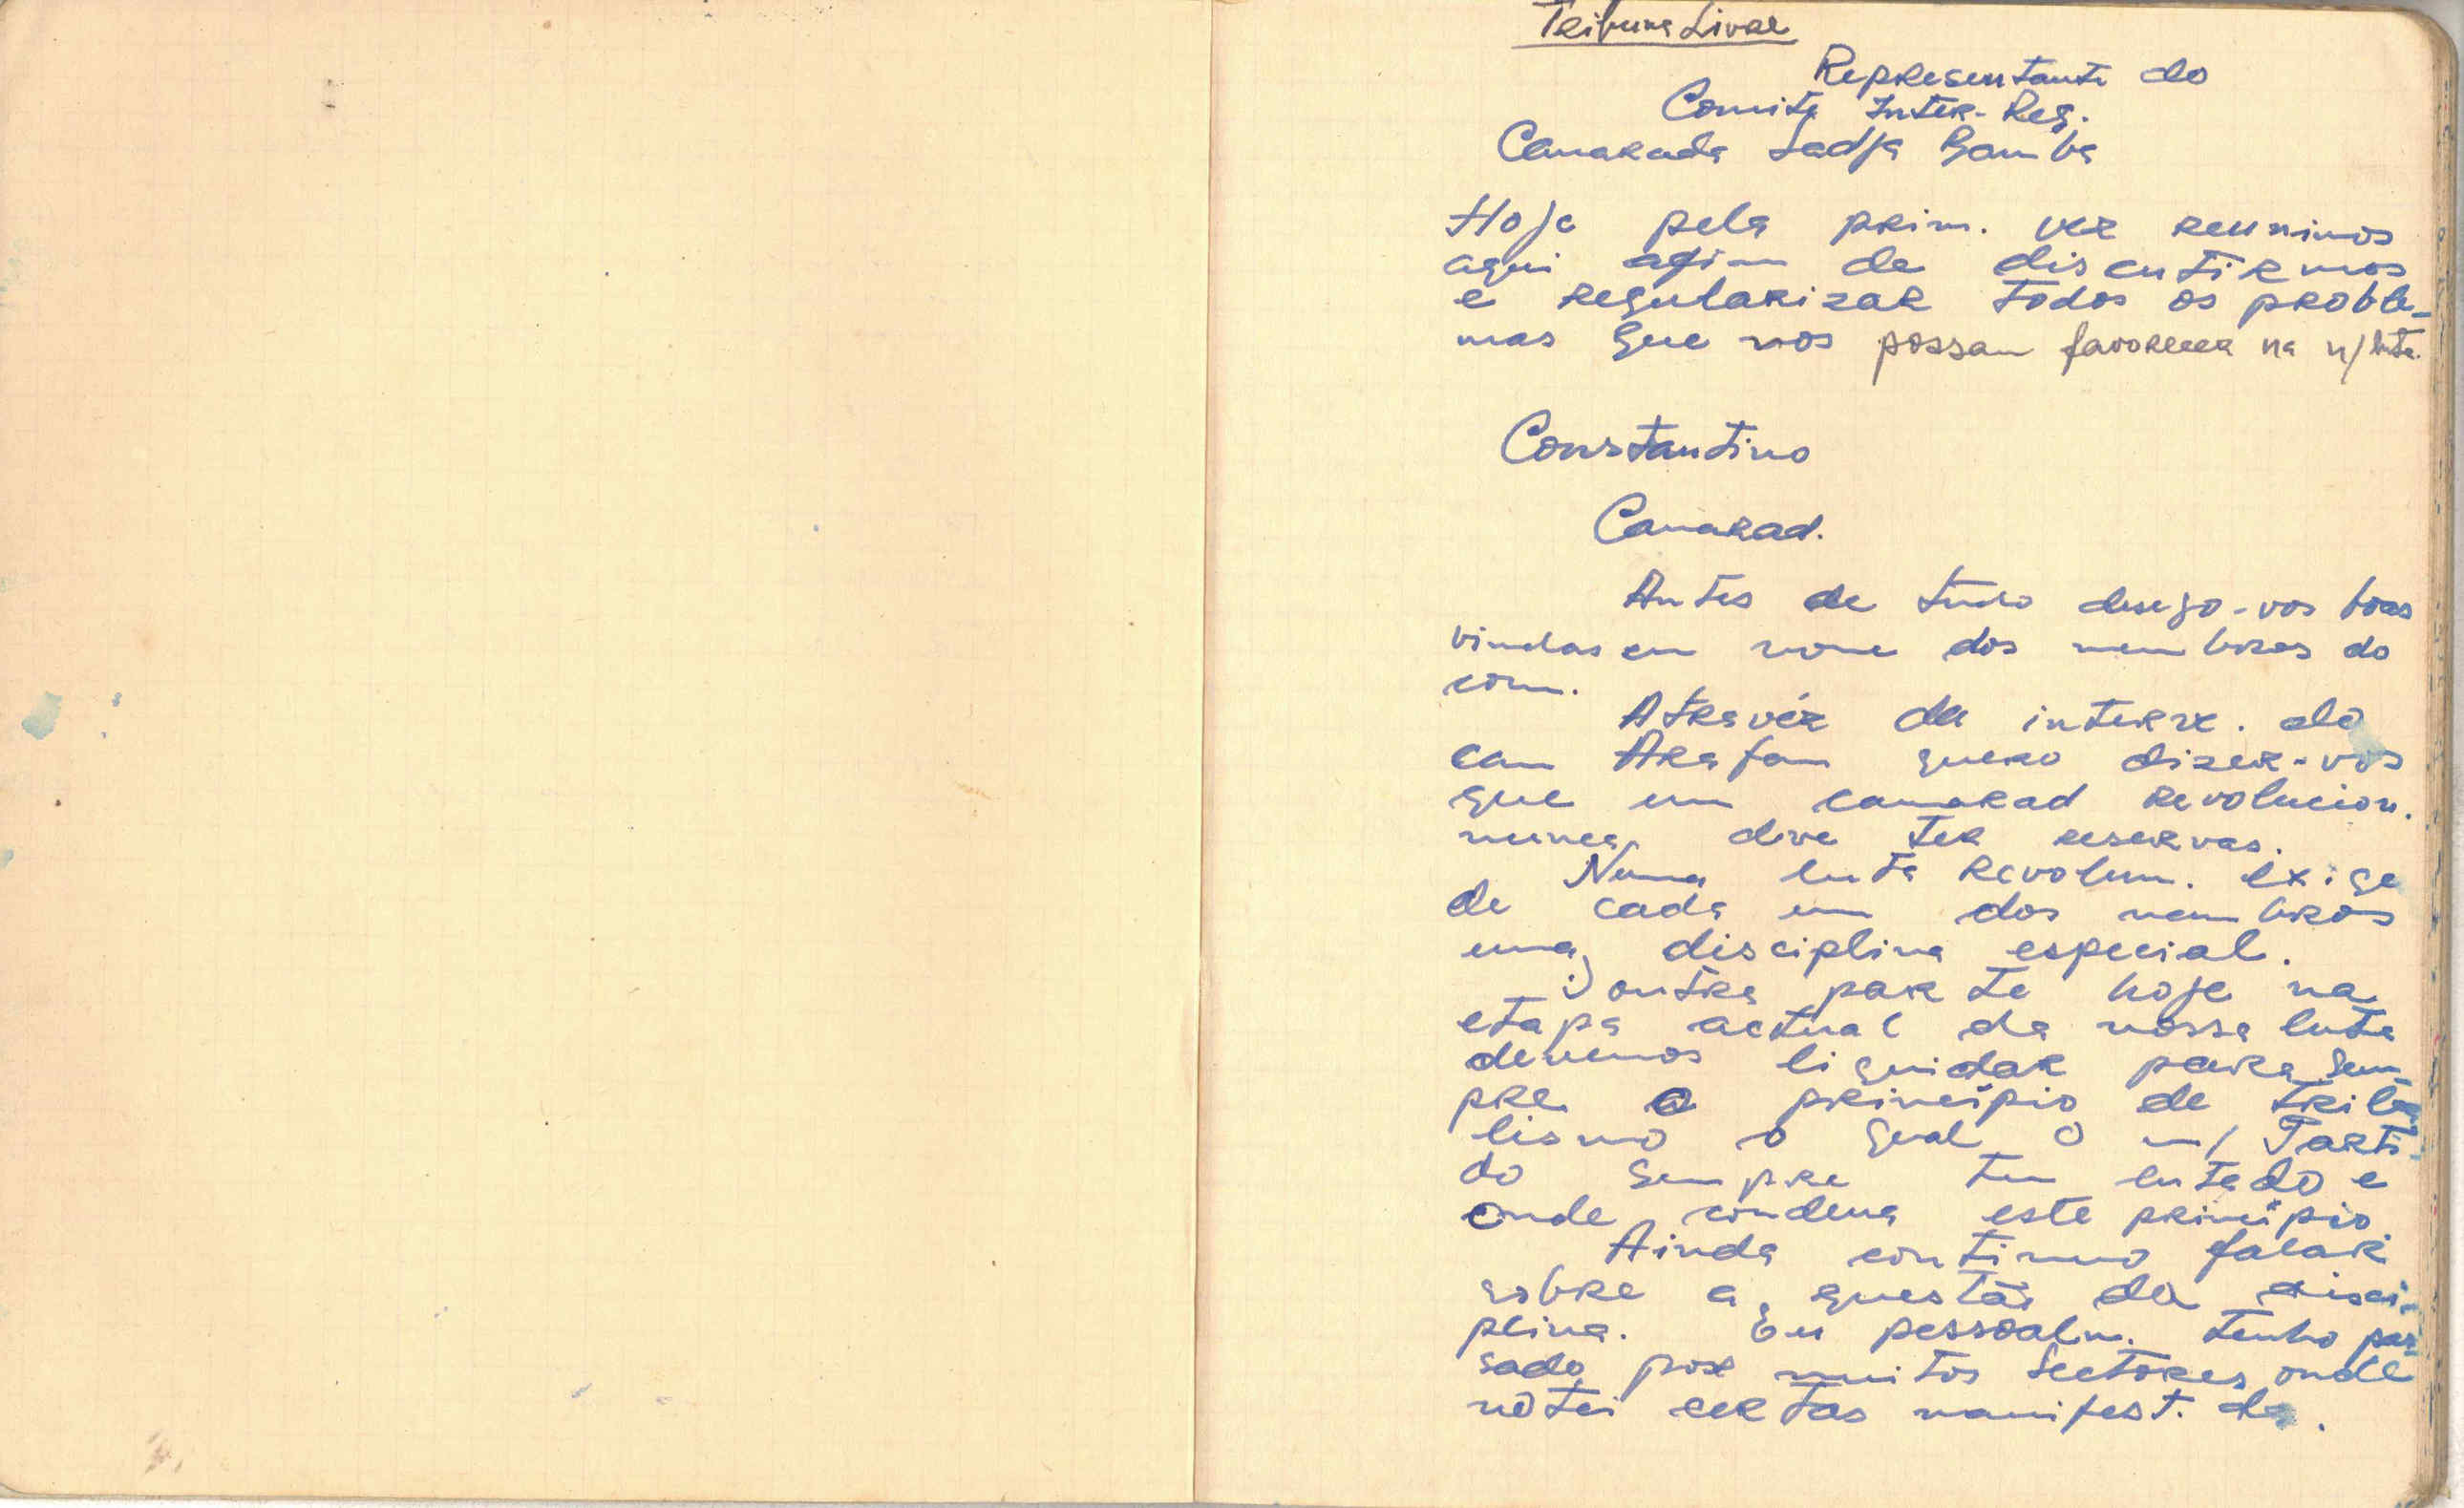 Tribuna Livre
Representante do
Comité Inter-Reg.
Camarada Ladja Bamba
Hoje pela prim. vez reunimos
aqui afim de discutirmos
e regularizar todos os proble-
mas que nos possam favorecer na n/ luta.
Constantino
Camarad.
Antes de tudo desejo-vos boas
vindas em nome dos membros do
com.
Atravéz da interv. do
cam Arafam quero dizer-vos
que um camarad revolucion.
nunca deve ter reservas.
Numa luta revolum. exige
de cada um dos membros
uma disciplina especial.
Doutra parte hoje na
etapa actual da nossa luta
devemos liquidar para sem-
pre o princípio de triba
lismo o qual o n/ Parti-
do sempre tem lutado e
onde condena este princípio.
Ainda continuo falar
sobre a questão da disci-
plina. Eu pessoalm. tenho pas-
sado por muitos sectores onde
notei certas manifest. de.